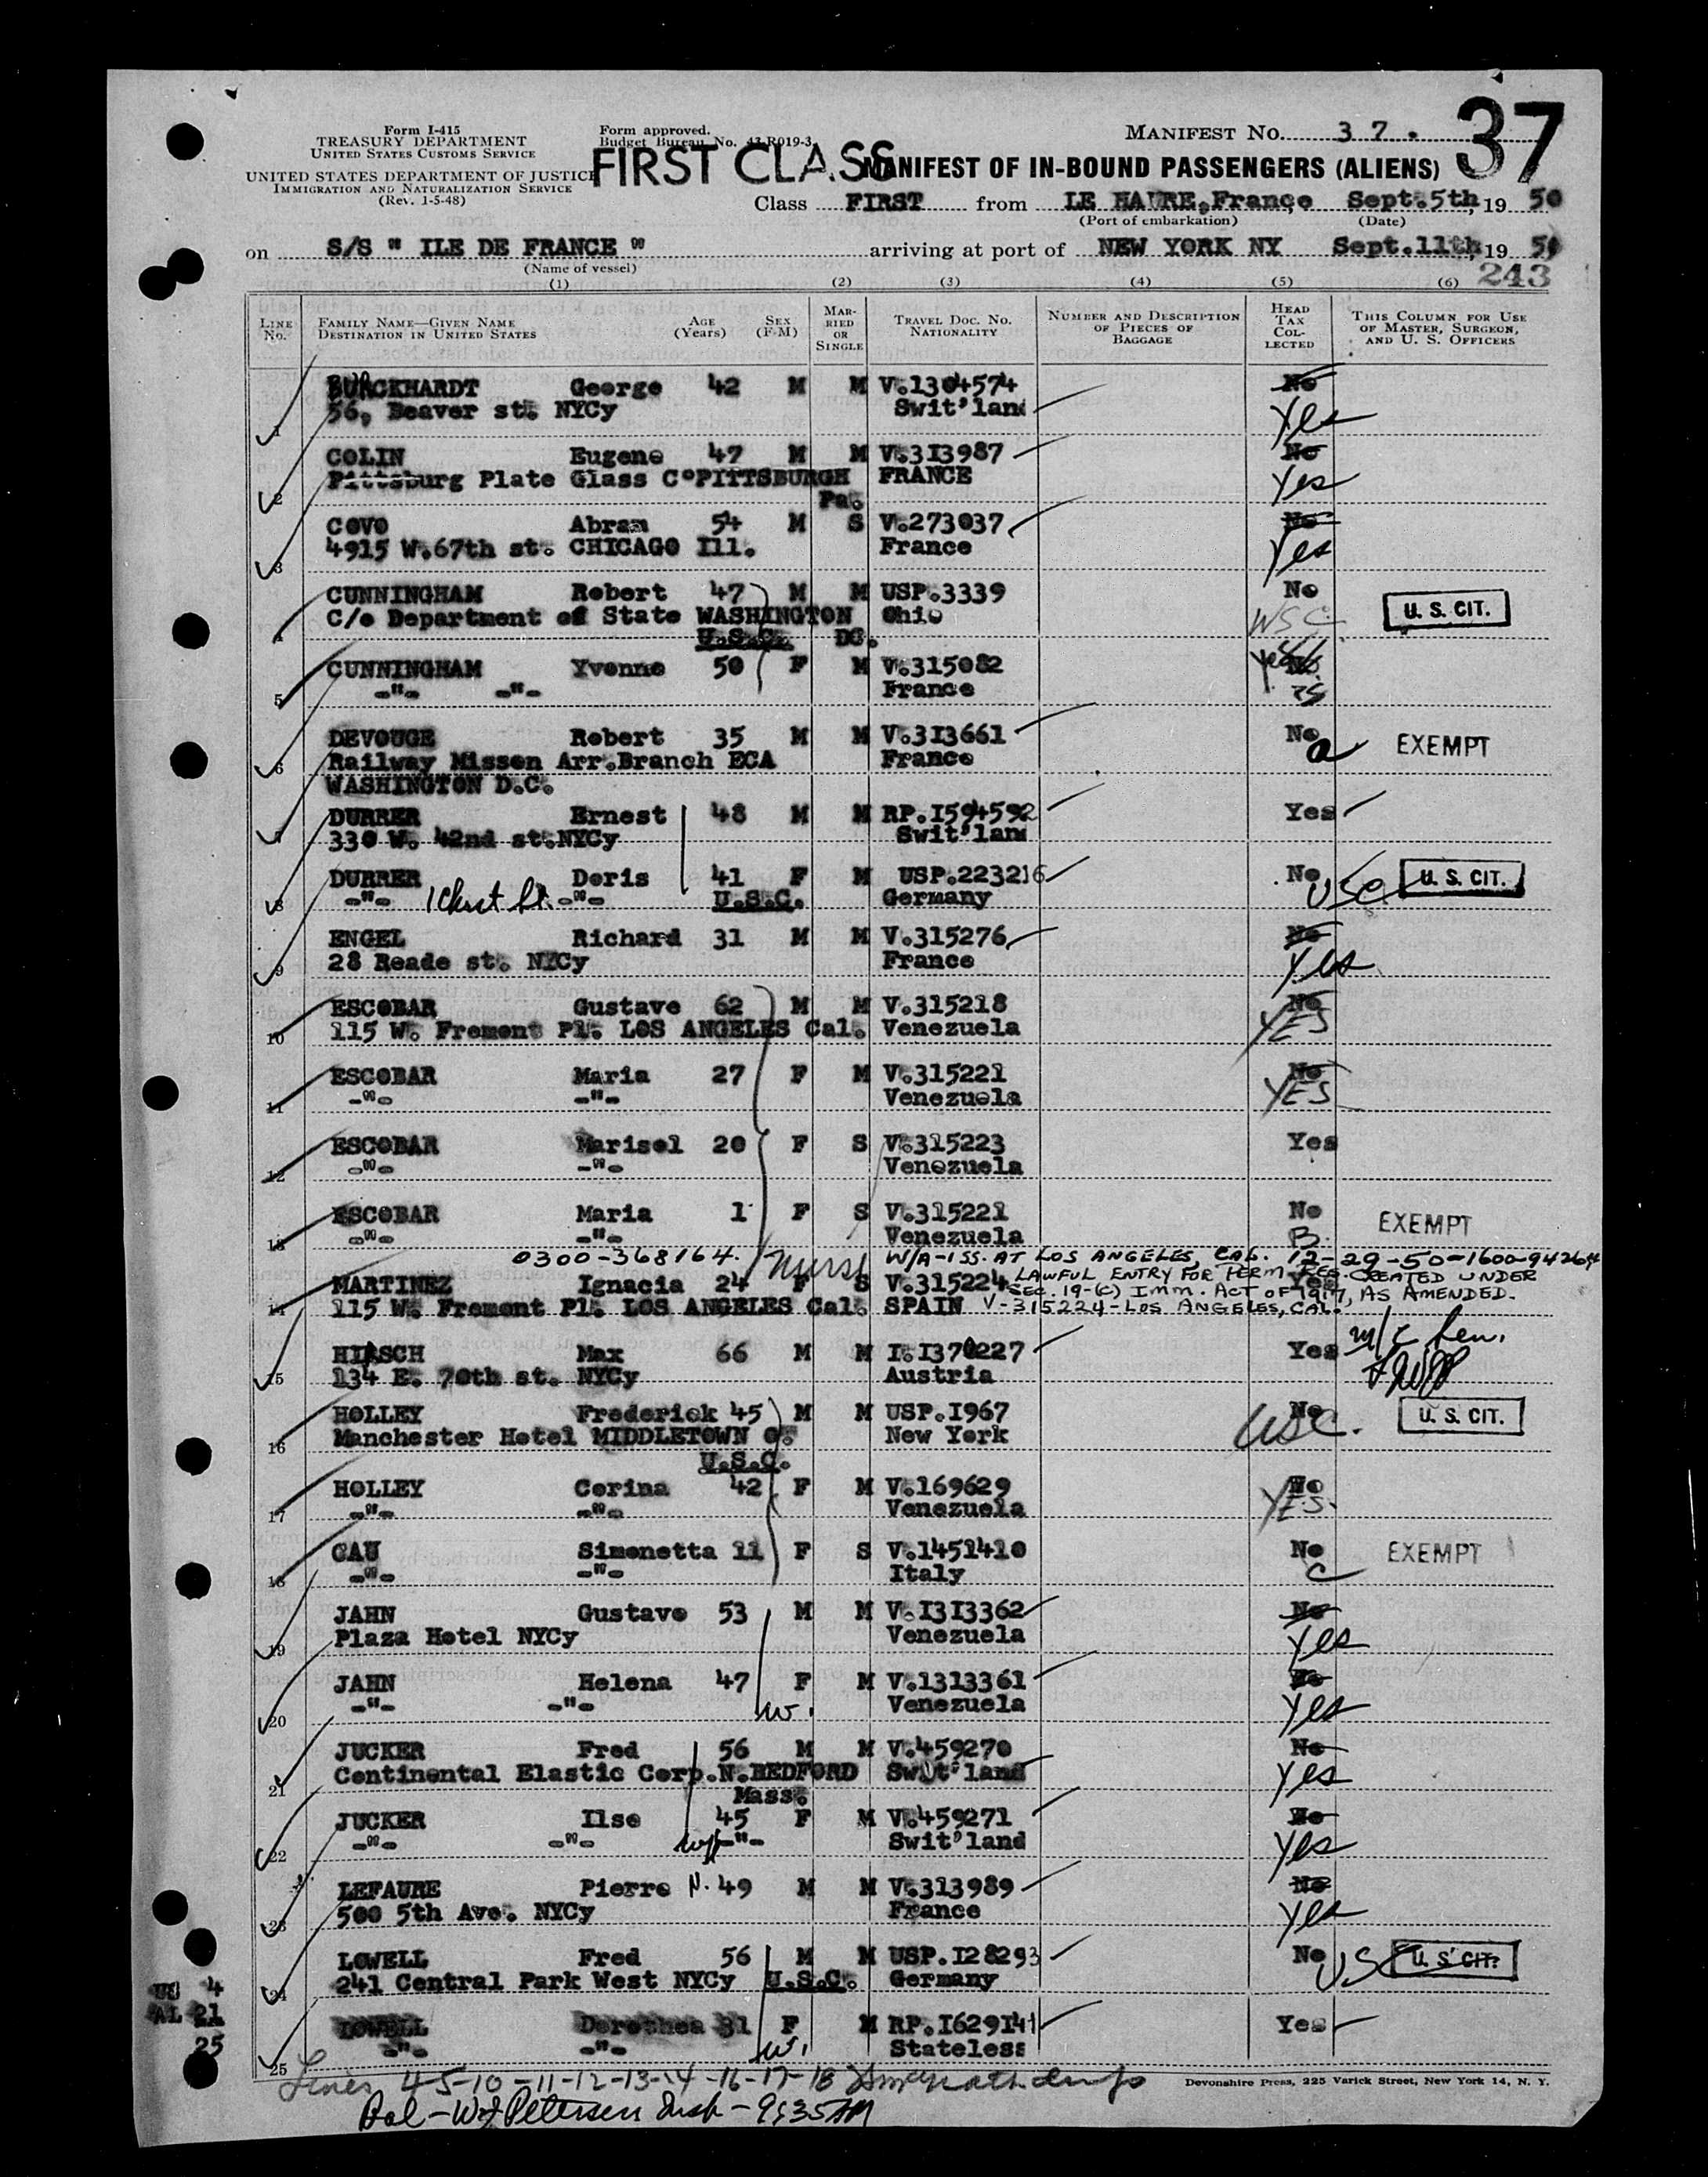 Form I-415
TREASURY DEPARTMENT
UNITED STATES CUSTOMS SERVICE
UNITED STATES DEPARTMENT OF JUSTICE
IMMIGRATION AND NATURALIZATION SERVICE
(Rev. 1-5-48)
Form approved.
Budget Bureau No. 43-R019-3
FIRST CLASS
MANIFEST NO. 37. 37
MANIFEST OF IN-BOUND PASSENGERS (ALIENS)
Class FIRST from LE HAVRE, France Sept. 5th, 19 50
(Port of embarkation) (Date)
on S/S " ILE DE FRANCE " arriving at port of NEW YORK NY Sept. 11th 19 50
(Name of vessel) 243
(1) (2) (3) (4) (5) (6)
LINE No. FAMILY NAME—GIVEN NAME DESTINATION IN UNITED STATES AGE (Years) SEX (F-M) MARRIED OR SINGLE TRAVEL DOC. NO. NATIONALITY NUMBER AND DESCRIPTION OF PIECES OF BAGGAGE HEAD TAX COLLECTED THIS COLUMN FOR USE OF MASTER, SURGEON, AND U. S. OFFICERS
1 BURCKHARDT George 42 M M V.1304574 No
56, Beaver st. NYCy Swit'land Yes
2 COLIN Eugene 47 M M V.313987 No
Pittsburg Plate Glass C° PITTSBURGH FRANCE Yes
Pa.
3 COVO Abram 54 M S V.273037 No
4915 W.67th st. CHICAGO Ill. France Yes
4 CUNNINGHAM Robert 47 M M USP.3339 No
C/o Department of State WASHINGTON Ohio WSC U. S. CIT.
U.S.C. DC.
5 CUNNINGHAM Yvonne 50 F M V.315082 No
-"- -"- France
6 DEVOUGE Robert 35 M M V.313661 No a EXEMPT
Railway Misson Arr.Branch ECA France
WASHINGTON D.C.
7 DURRER Ernest 48 M M RP.I594592 Yes
330 W. 42nd st. NYCy Swit'land
8 DURRER Doris 41 F M USP.223216 No USC U. S. CIT.
-"- -"- U.S.C. Germany
9 ENGEL Richard 31 M M V.315276 No
28 Reade st. NYCy France Yes
10 ESCOBAR Gustave 62 M M V.315218 No
115 W. Fremont Pl. LOS ANGELES Cal. Venezuela YES
11 ESCOBAR Maria 27 F M V.315221 No
-"- -"- Venezuela YES
12 ESCOBAR Marisol 20 F S V.315223 Yes
-"- -"- Venezuela
13 ESCOBAR Maria 1 F S V.315221 No EXEMPT
-"- -"- Venezuela B
0300-368164. Nurse W/A-ISS. AT LOS ANGELES, CAL. 12-29-50-1600-94264
14 MARTINEZ Ignacia 24 F S V.315224 Yes LAWFUL ENTRY FOR PERM. RES. CREATED UNDER
SEC. 19-(C) IMM. ACT OF 1917, AS AMENDED.
115 W. Fremont Pl. LOS ANGELES Cal. SPAIN V-315224-LOS ANGELES, CAL.
15 HIRSCH Max 66 M M I.I370227 Yes
134 E. 70th st. NYCy Austria
16 HOLLEY Frederick 45 M M USP.I967 No USC. U. S. CIT.
Manchester Hotel MIDDLETOWN O. New York
U.S.C.
17 HOLLEY Corina 42 F M V.169629 No
-"- -"- Venezuela YES
18 GAU Simonetta 11 F S V.1451410 No EXEMPT
-"- -"- Italy C
19 JAHN Gustavo 53 M M V.I3I3362 No
Plaza Hotel NYCy Venezuela Yes
20 JAHN Helena 47 F M V.1313361 No
-"- -"- W. Venezuela Yes
21 JUCKER Fred 56 M M V.459270 No
Continental Elastic Corp.N.BEDFORD Swit'land Yes
Mass.
22 JUCKER Ilse 45 F M V.459271 No
-"- -"- -"- Swit'land Yes
23 LEFAURE Pierre N. 49 M M V.313989 No
500 5th Ave. NYCy France Yes
24 LOWELL Fred 56 M M USP.I28293 No USC U. S. CIT.
241 Central Park West NYCy U.S.C. Germany
25 LOWELL Dorothea 31 F M RP.I629141 Yes
-"- -"- W. Stateless
US 4
AL 21
25
Lines 4-5-10-11-12-13-14-16-17-18
Devonshire Press, 225 Varick Street, New York 14, N. Y.
Bal - WJ Petersen Insp - 9:35 AM